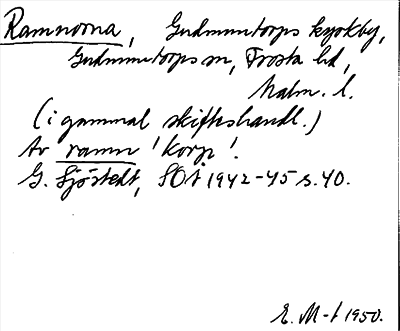 Ramnorna, Gudmuntorps kyrkby,
Gudmuntorps sn, Frosta hd,
Malm. l.
(i gammal skifteshandl.)
Av ramn 'korp'.
G. Sjöstedt, SOÅ 1942-45 s. 40.
E. M-t 1950.